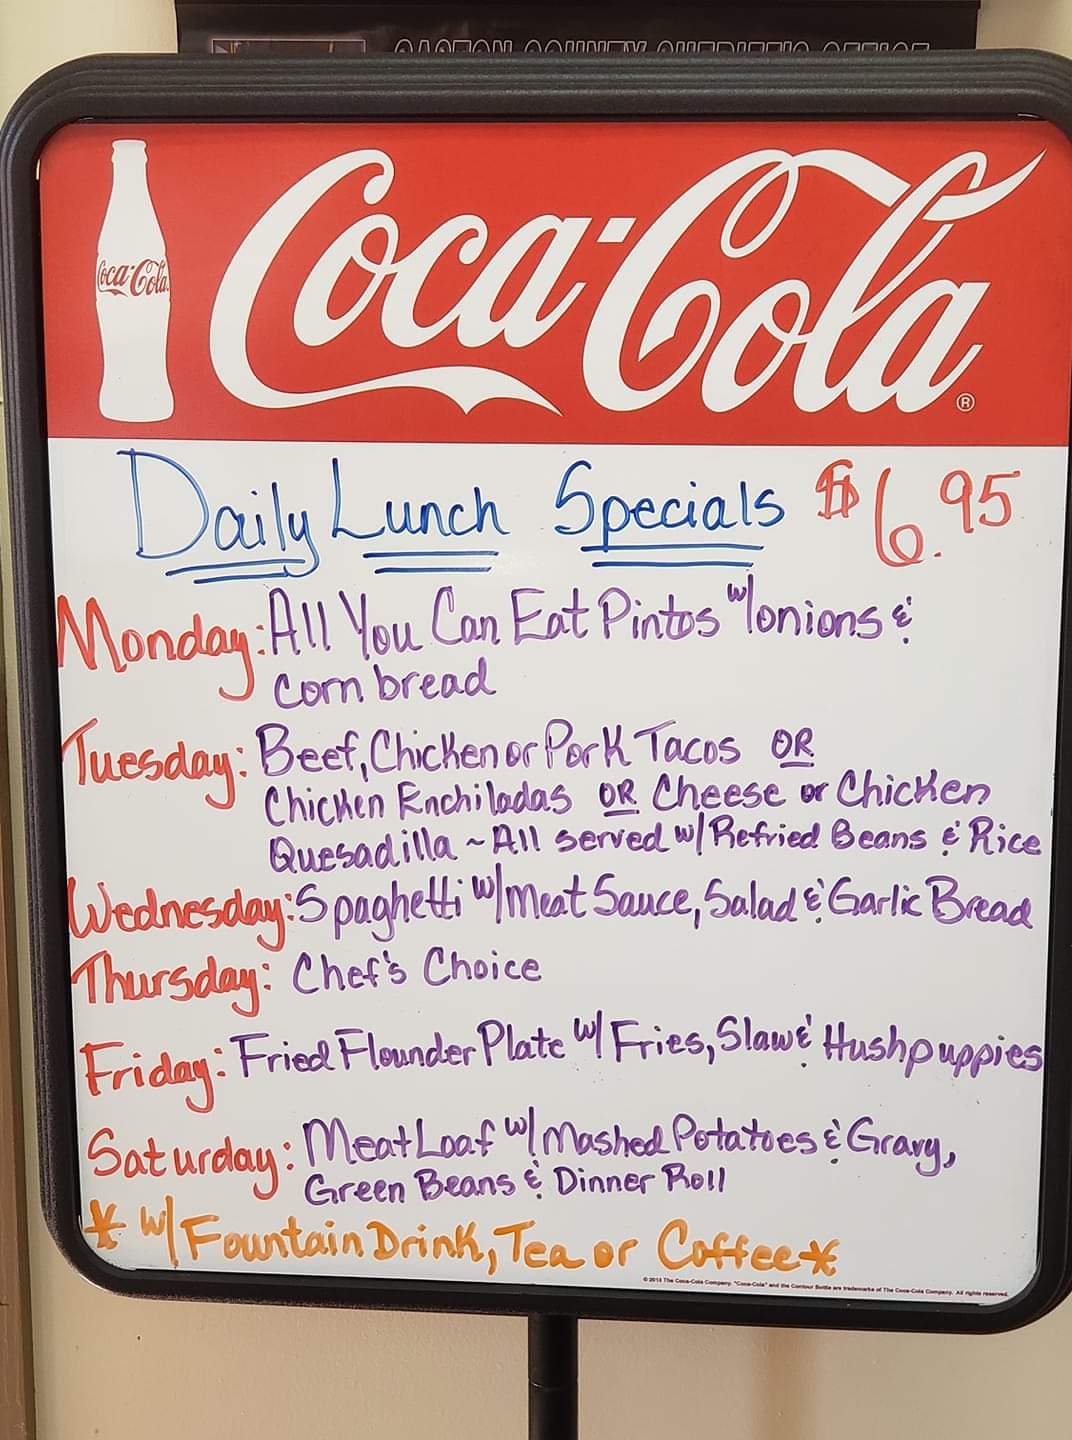 GASTON COUNTY SHERIFF'S OFFICE
Coca-Cola
Coca-Cola®
Daily Lunch Specials $6.95
Monday: All You Can Eat Pintos w/onions &
corn bread
Tuesday: Beef, Chicken or Pork Tacos OR
Chicken Enchiladas OR Cheese or Chicken
Quesadilla ~ All served w/Refried Beans & Rice
Wednesday: Spaghetti w/Meat Sauce, Salad & Garlic Bread
Thursday: Chef's Choice
Friday: Fried Flounder Plate w/ Fries, Slaw & Hushpuppies
Saturday: Meat Loaf w/Mashed Potatoes & Gravy,
Green Beans & Dinner Roll
* w/Fountain Drink, Tea or Coffee*
The Coca-Cola Company. "Coca-Cola" and the Contour Bottle are trademarks of The Coca-Cola Company. All rights reserved.